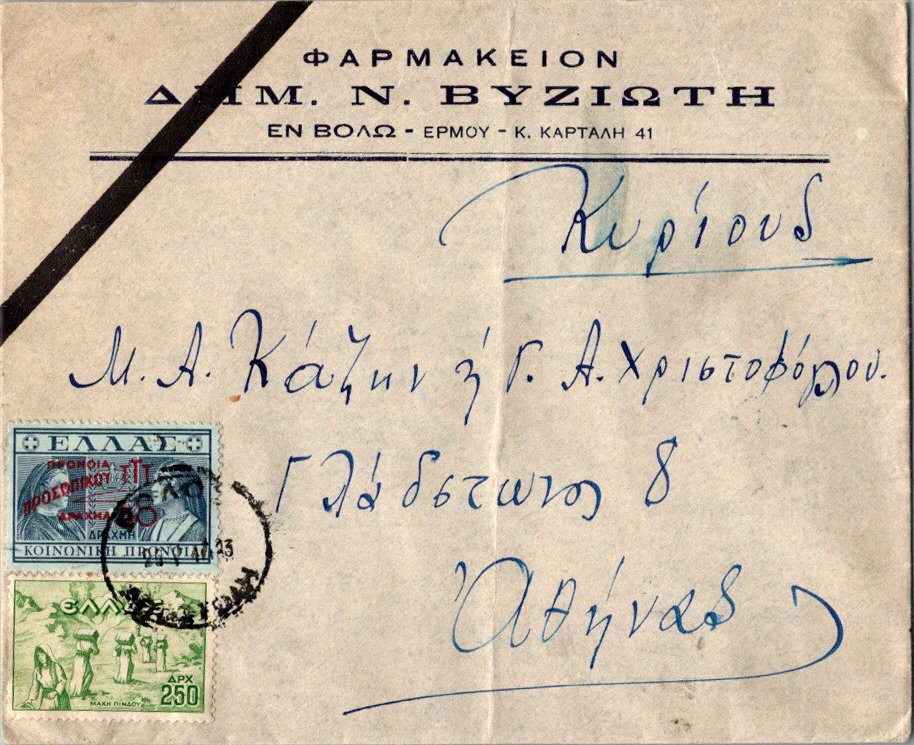 ΦΑΡΜΑΚΕΙΟΝ
ΔΗΜ. Ν. ΒΥΖΙΩΤΗ
ΕΝ ΒΟΛΩ - ΕΡΜΟΥ - Κ. ΚΑΡΤΑΛΗ 41
Κυρίους
Μ. Α. Κάζην ή Γ. Α. Χριστοφόρου.
Γλάδστωνος 8
Ἀθήνας
ΕΛΛΑΣ
ΠΡΟΝΟΙΑ
ΠΡΟΣΩΠΙΚΟΥ ΤΤΤ
ΔΡΑΧΜΑΙ 50
ΔΡΑΧΜΗ
ΚΟΙΝΩΝΙΚΗ ΠΡΟΝΟΙΑ
ΒΟΛΟΣ
ΕΛΛΑΣ
ΔΡΧ
250
ΜΑΧΗ ΠΙΝΔΟΥ